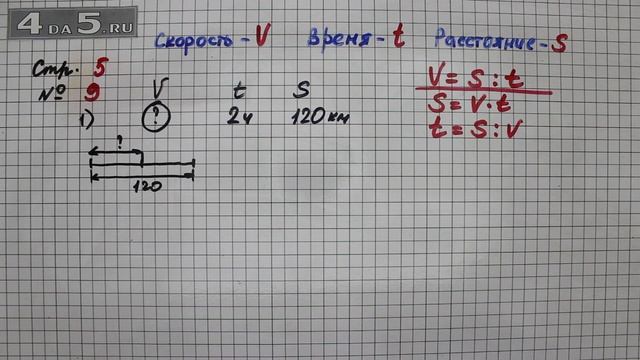 4ДА5.RU
Скорость - V Время - t Расстояние - S
Стр. 5
№ 9 V t S
1) ? 2ч 120км
V = S : t
S = V · t
t = S : V
?
120